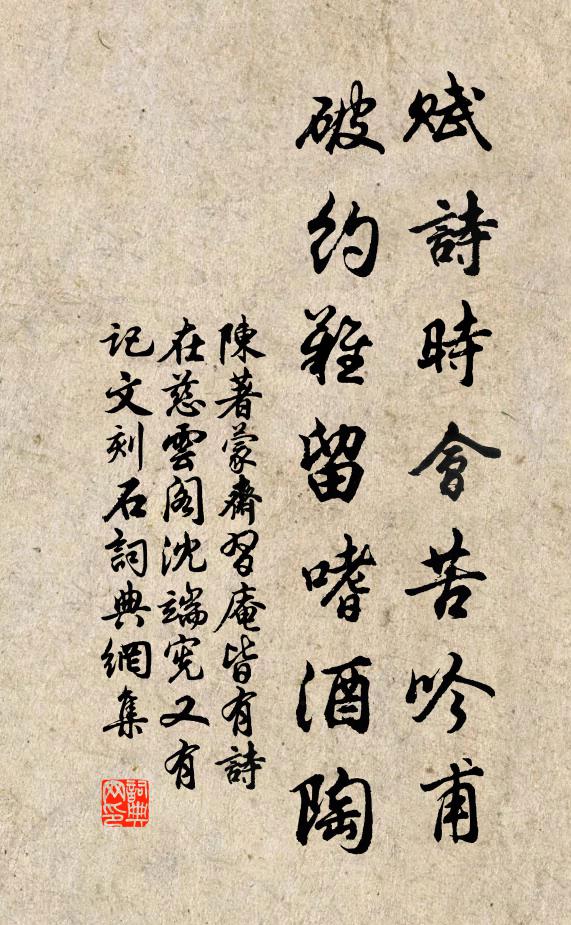 賦詩時會苦吟甫
破約難留嗜酒陶
陳著蒙齋習庵皆有詩
在慈雲閣沈端憲又有
記文刻石詞典網集
詞典網印